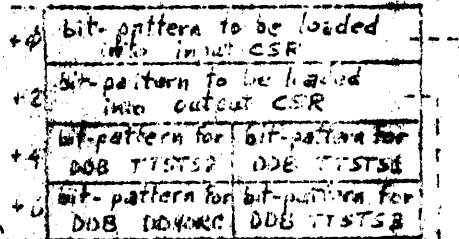 +0 bit-pattern to be loaded
into input CSR
+2 bit-pattern to be loaded
into output CSR
bit-pattern for bit-pattern for
+4 DDB TTSTS2 DDB
+6 bit-pattern for bit-pattern for
DDB DDB